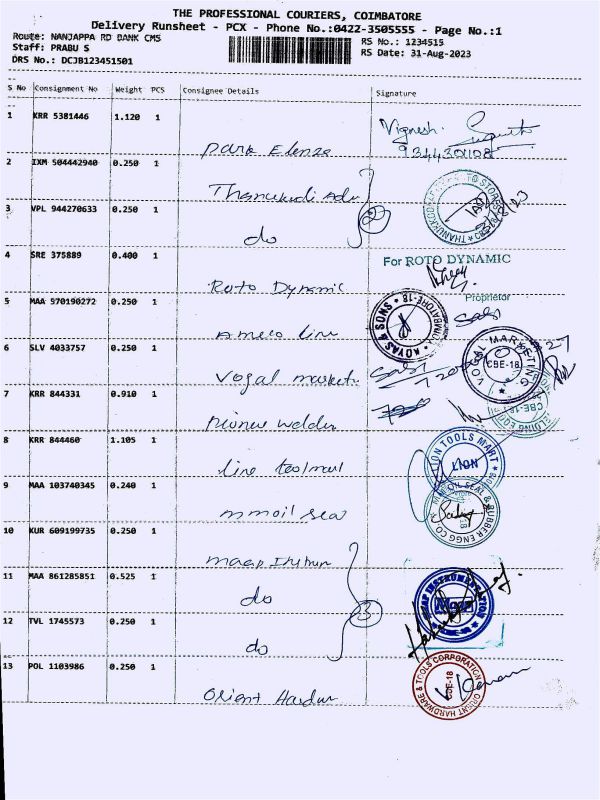 THE PROFESSIONAL COURIERS, COIMBATORE
Delivery Runsheet - PCX - Phone No.:0422-3505555 - Page No.:1
Route: NANJAPPA RD BANK CMS
RS No.: 1234515
Staff: PRABU S
RS Date: 31-Aug-2023
DRS No.: DCJB123451501
S No Consignment No Weight PCS Consignee Details Signature
1 KRR 5381446 1.120 1
Vignesh
Park Elanza
2 IXM 504442940 0.250 1
Thanukodi Adv
3 VPL 944270633 0.250 1
do
2
4 SRE 375889 0.400 1
For ROTO DYNAMIC
Roto Dynamic
Proprietor
5 MAA 970190272 0.250 1
KOVAS & SONS
6 SLV 4033757 0.250 1
VOGAL MARKETING
CBE-18
Vogal market
7 KRR 844331 0.910 1
CBE-18
8 KRR 844460 1.105 1
LION TOOLS MART
LION
9 MAA 103740345 0.240 1
OIL SEAL & RUBBER ENGG CO
mmoil seal
10 KUR 609199735 0.250 1
11 MAA 861285851 0.525 1
MAAP INSTRUMENTATION
do
3
12 TVL 1745573 0.250 1
do
13 POL 1103986 0.250 1
ORIENT HARDWARE & TOOLS CORPORATION
CBE-18
Orient Hardwr